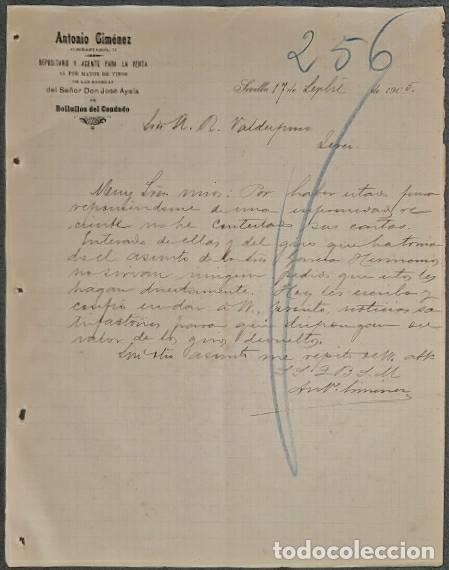 Antonio Giménez
DEPOSITARIO Y AGENTE PARA LA VENTA
AL POR MAYOR DE VINOS
DE LAS BODEGAS
del Señor Don José Ayala
DE
Bollullos del Condado
256
Sevilla 17 de Sepbre de 1905.
Sres A. R. Valdespino
Jerez
Muy Sres mios: Por haber estado fuera
reponiéndome de una enfermedad re
ciente no he contestado sus cartas.
Enterado de ellas y del giro que ha toma
do el asunto de los Sres García Hermanos
no sirvan ningun pedido que estos les
hagan directamente. Hoy les escribo y
confio en dar á V. pronto noticias sa
tisfactorias para que dispongan
valor de los giros devueltos.
Sin otro asunto me repito de V.
S S Q B S M
Ant. Giménez
todocoleccion